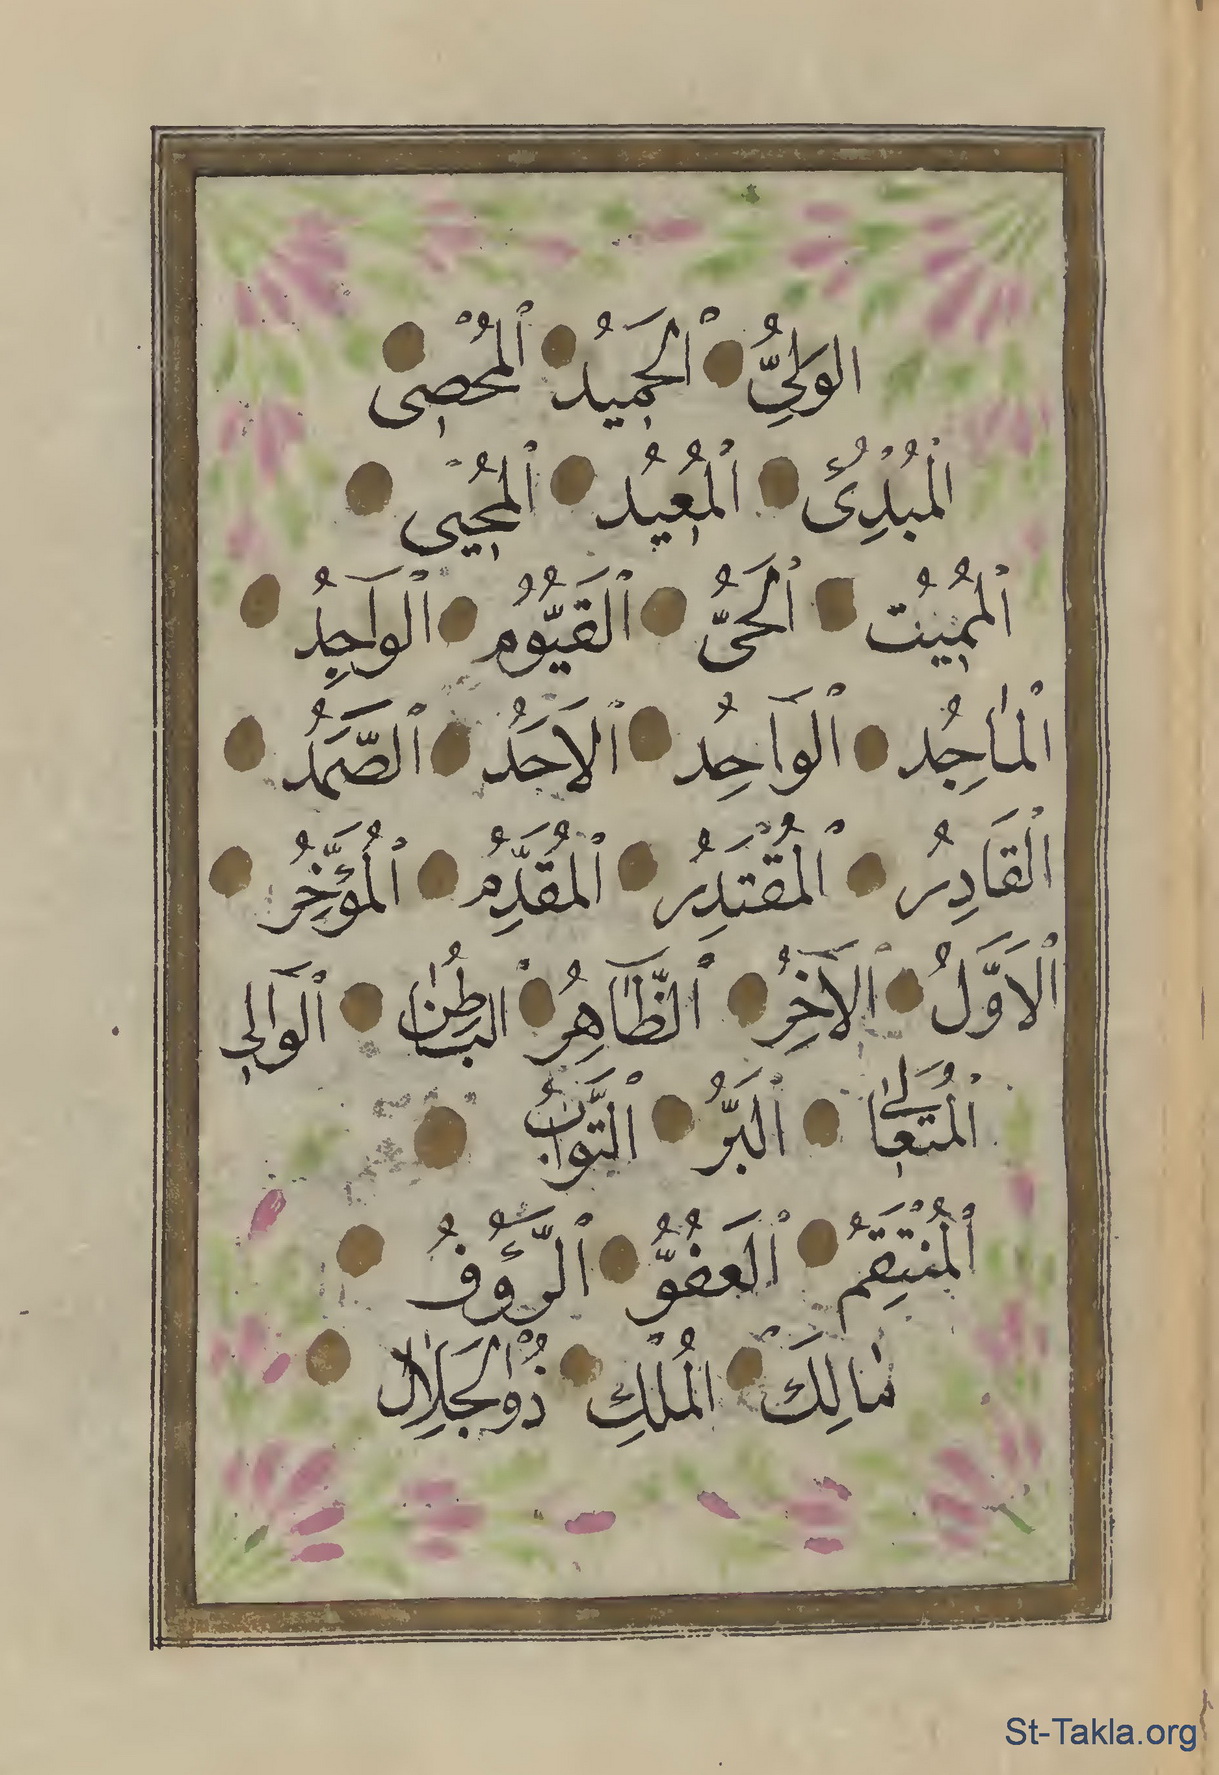 الوَلِيُّ الْحَمِيدُ الْمُحْصِى
الْمُبْدِئُ الْمُعِيدُ الْمُحْيِى
الْمُمِيتُ الْحَىُّ الْقَيُّومُ الْوَاجِدُ
الْمَاجِدُ الْوَاحِدُ الْاَحَدُ الصَّمَدُ
الْقَادِرُ الْمُقْتَدِرُ الْمُقَدِّمُ الْمُؤَخِّرُ
الْاَوَّلُ الْآخِرُ الظَّاهِرُ الْبَاطِنُ الْوَالِى
الْمُتَعَالَى الْبَرُّ التَّوَّابُ
الْمُنْتَقِمُ الْعَفُوُّ الرَّؤُوفُ
مَالِكَ الْمُلْكِ ذُوالْجَلَالِ
St-Takla.org